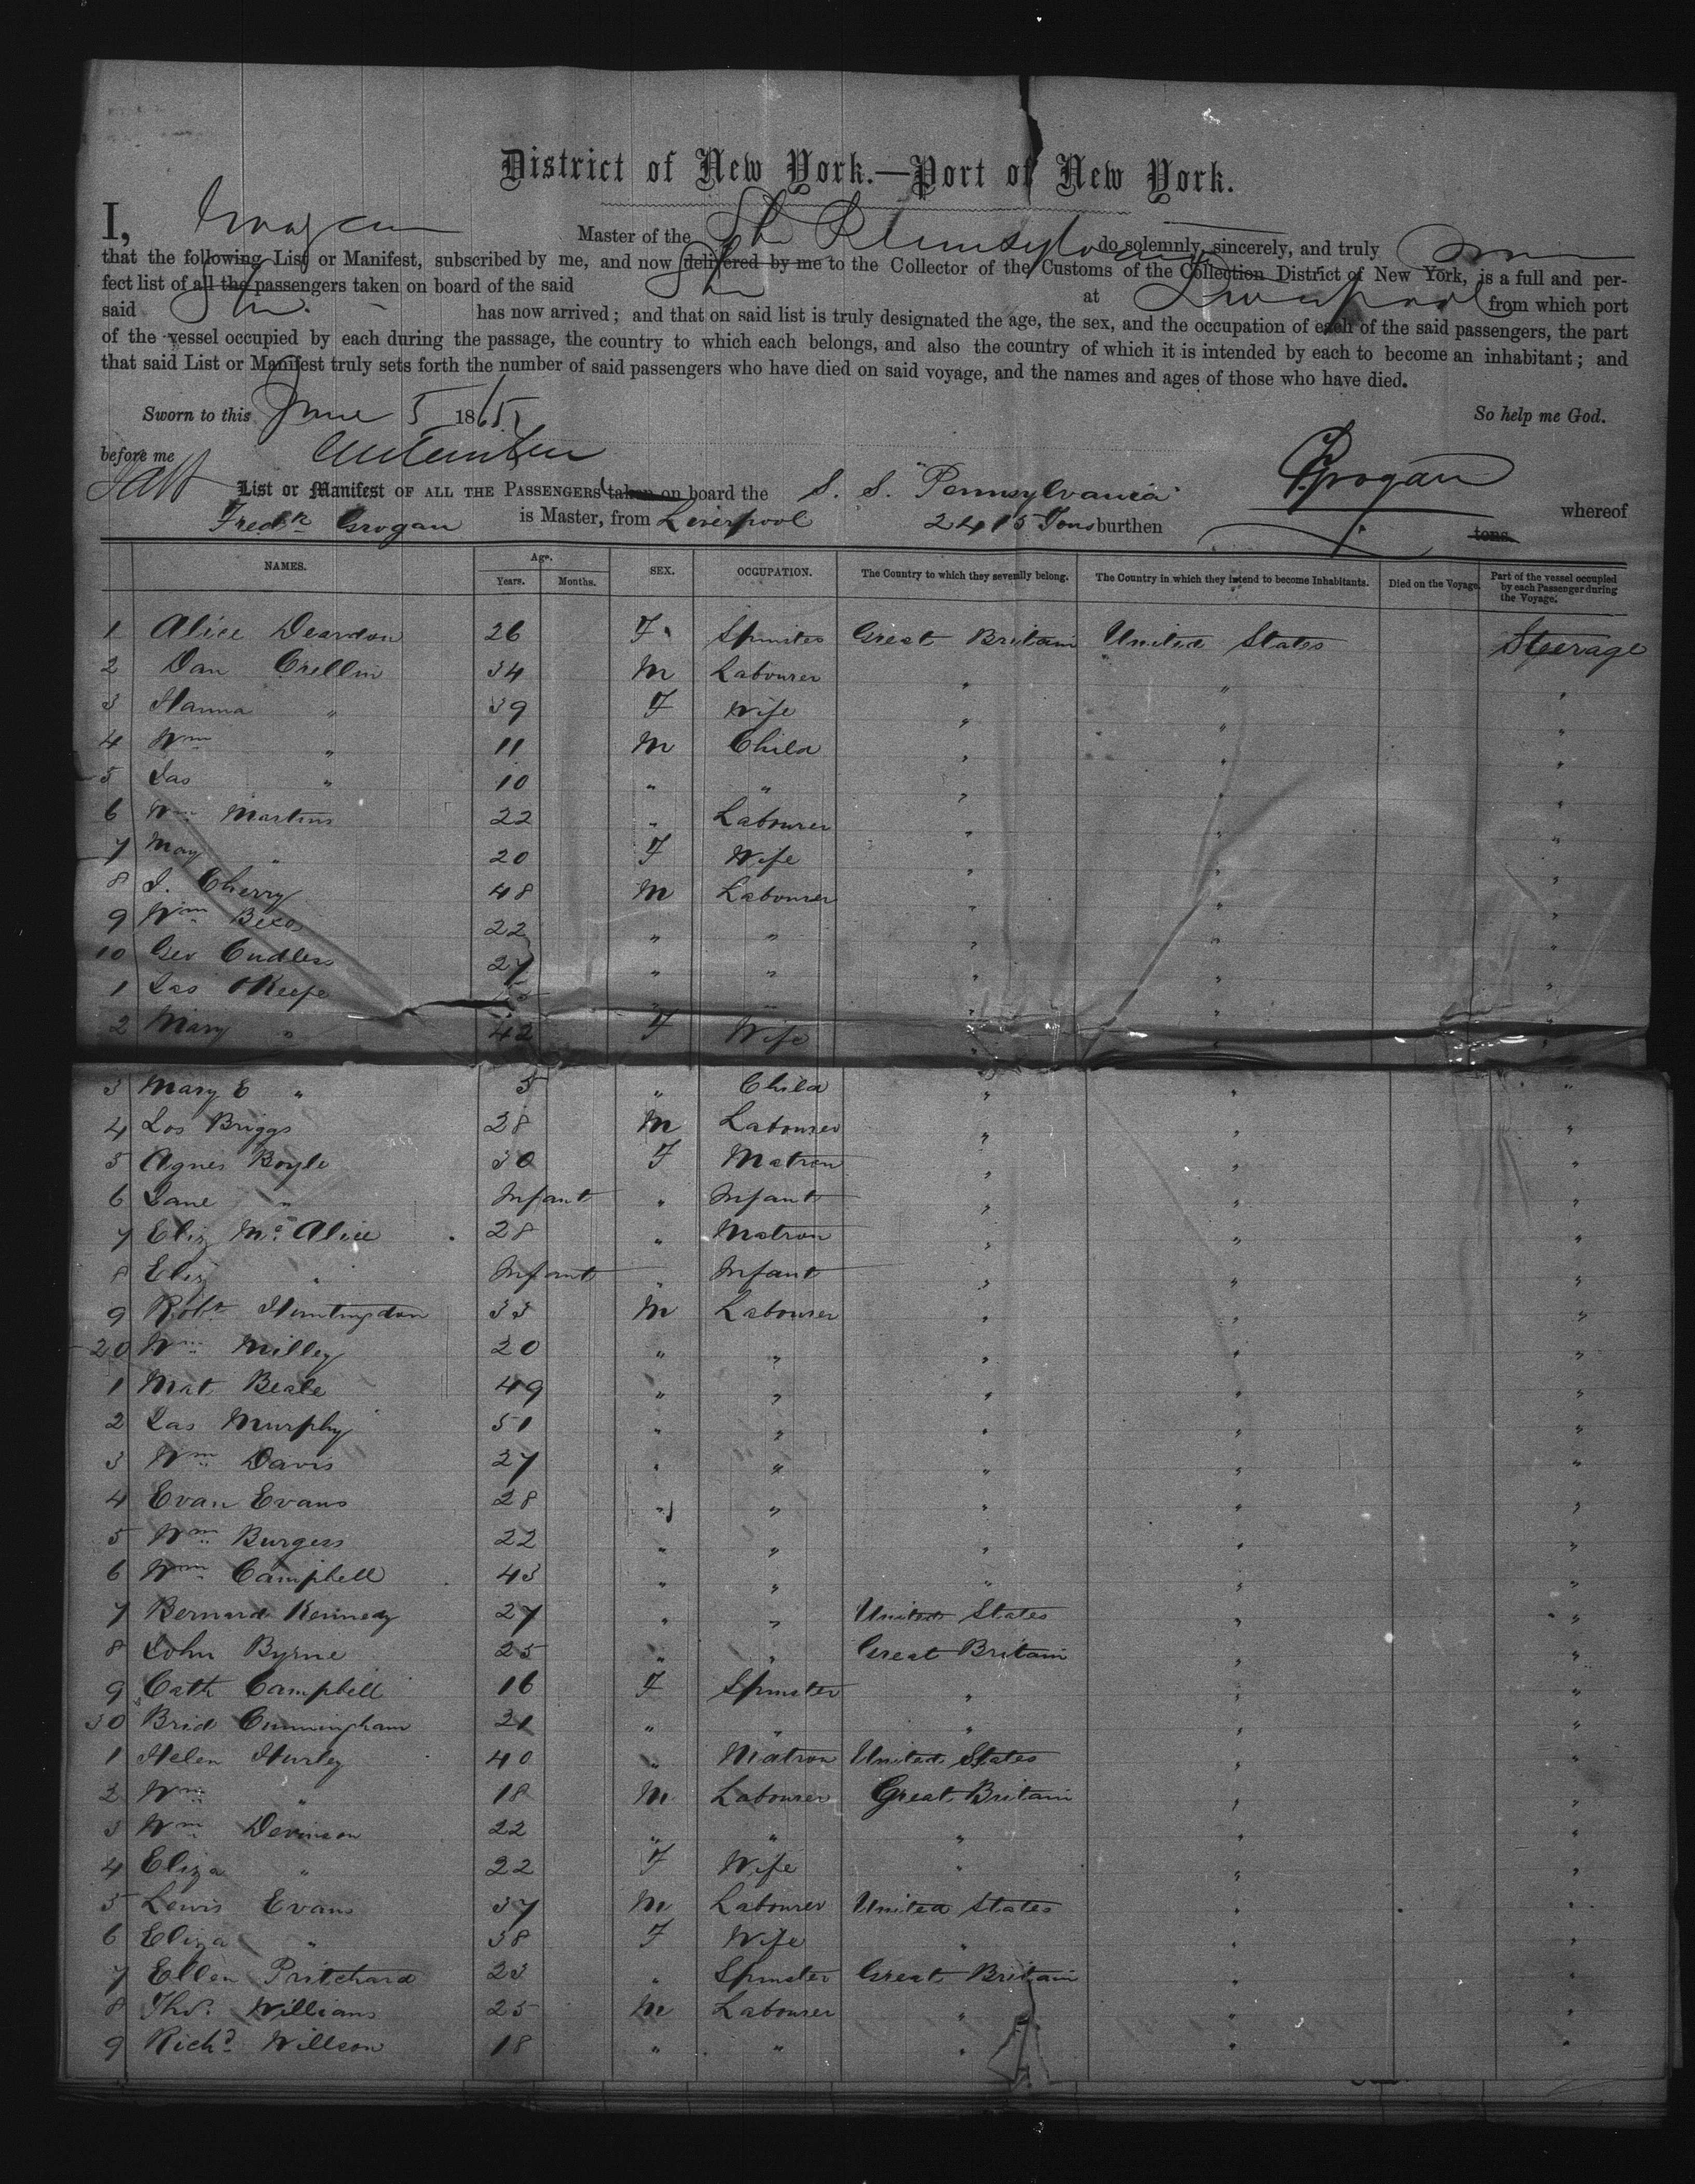 District of New York.—Port of New York.
I, Grogan Master of the Str Pennsylvania do solemnly, sincerely, and truly
that the following List or Manifest, subscribed by me, and now delivered by me to the Collector of the Customs of the Collection District of New York, is a full and per-
fect list of all the passengers taken on board of the said Str at Liverpool from which port
said Str. has now arrived; and that on said list is truly designated the age, the sex, and the occupation of each of the said passengers, the part
of the vessel occupied by each during the passage, the country to which each belongs, and also the country of which it is intended by each to become an inhabitant; and
that said List or Manifest truly sets forth the number of said passengers who have died on said voyage, and the names and ages of those who have died.
Sworn to this June 5 1865 So help me God.
before me
F Grogan
List or Manifest OF ALL THE PASSENGERS taken on board the S. S. "Pennsylvania" whereof
Fredk Grogan is Master, from Liverpool 2415 Tons burthen tons.
NAMES. Age. Years. Months. SEX. OCCUPATION. The Country to which they severally belong. The Country in which they intend to become Inhabitants. Died on the Voyage. Part of the vessel occupied by each Passenger during the Voyage.
1 Alice Deardon 26 F Spinster Great Britain United States Steerage
2 Dan Crellin 34 M Labourer " " "
3 Hanna " 39 F Wife " " "
4 Wm " 11 M Child " " "
5 Jas " 10 " " " " "
6 Wm Martins 22 " Labourer " " "
7 May " 20 F Wife " " "
8 J. Cherry 48 M Labourer " " "
9 Wm 22 " " " " "
10 Geo Cudless 27 " " " " "
1 Jas O'Keefe " " " " "
2 Mary " 42 F Wife " " "
3 Mary E " 5 " Child " " "
4 Jos Briggs 28 M Labourer " " "
5 Agnes Boyle 30 F Matron " " "
6 Jane " Infant " Infant " " "
7 Eliz Mc Alice 28 " Matron " " "
8 Eliz " Infant " Infant " " "
9 Robt Huntingdon 33 M Labourer " " "
20 Wm Milley 20 " " " " "
1 Mat Beale 49 " " " " "
2 Jas Murphy 51 " " " " "
3 Wm Davis 27 " " " " "
4 Evan Evans 28 " " " " "
5 Wm Burgess 22 " " " " "
6 Wm Campbell 43 " " " " "
7 Bernard Kennedy 27 " " United States " "
8 John Byrne 25 " " Great Britain " "
9 Cath Campbell 16 F Spinster " " "
30 Brid Cunningham 21 " " " " "
1 Helen Hurley 40 " Matron United States " "
2 Wm " 18 M Labourer Great Britain " "
3 Wm Devinson 22 " " " " "
4 Eliza " 22 F Wife " " "
5 Lewis Evans 37 M Labourer United States " "
6 Eliza " 38 F Wife " " "
7 Ellen Pritchard 23 " Spinster Great Britain " "
8 Thos. Williams 25 M Labourer " " "
9 Richd Willson 18 " " " " "